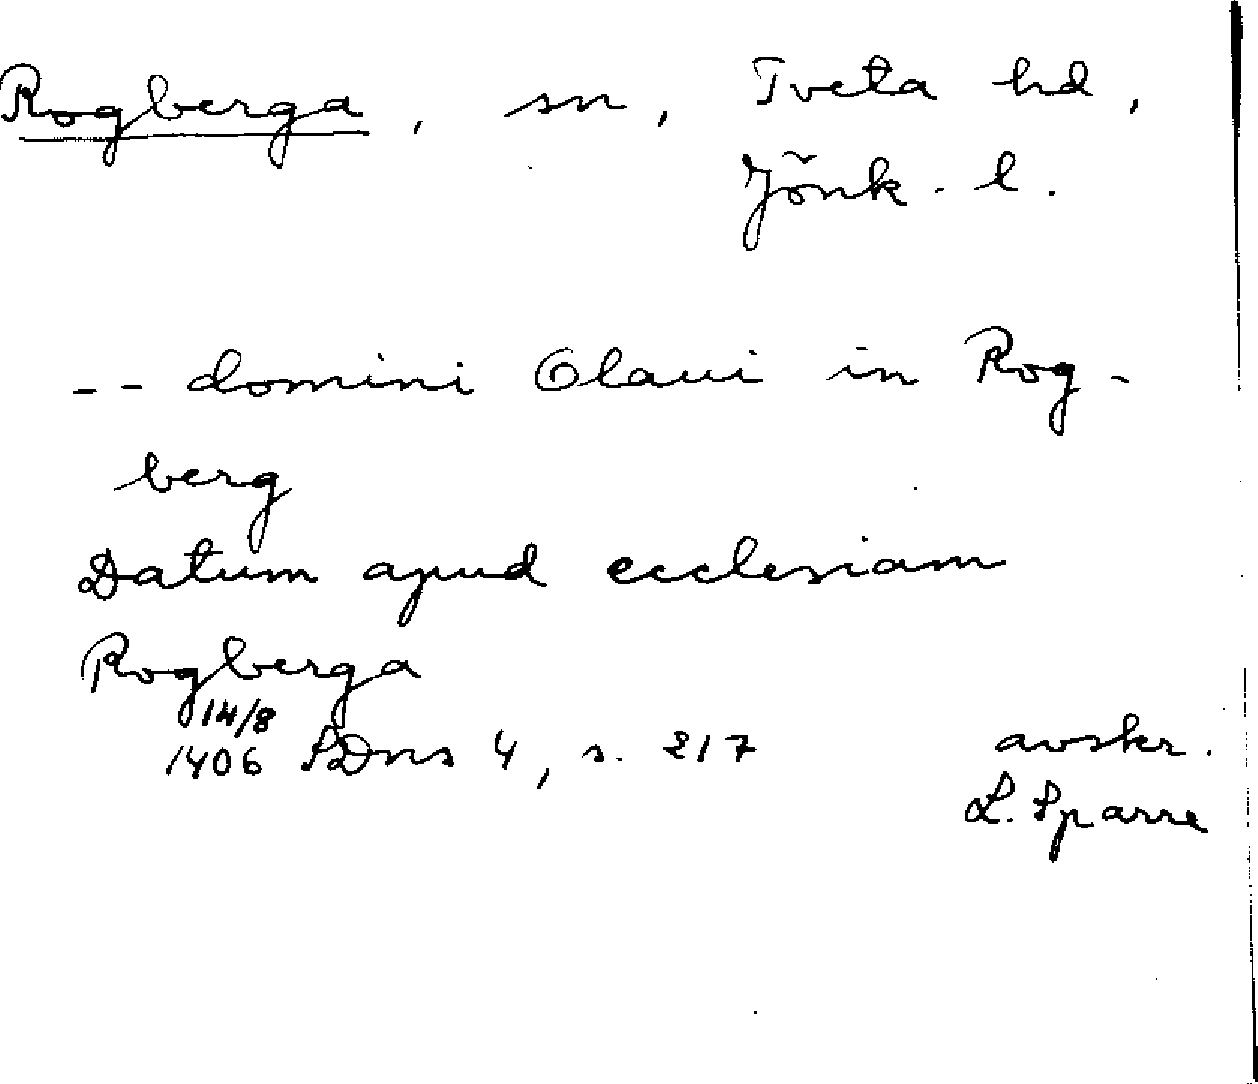 Rogberga, sn, Tveta hd,
Jönk. l.
-- domini Olaui in Rog-
berg
Datum apud ecclesiam
Rogberga
14/8
1406 SDns 4, s. 217 avskr.
L. Sparre